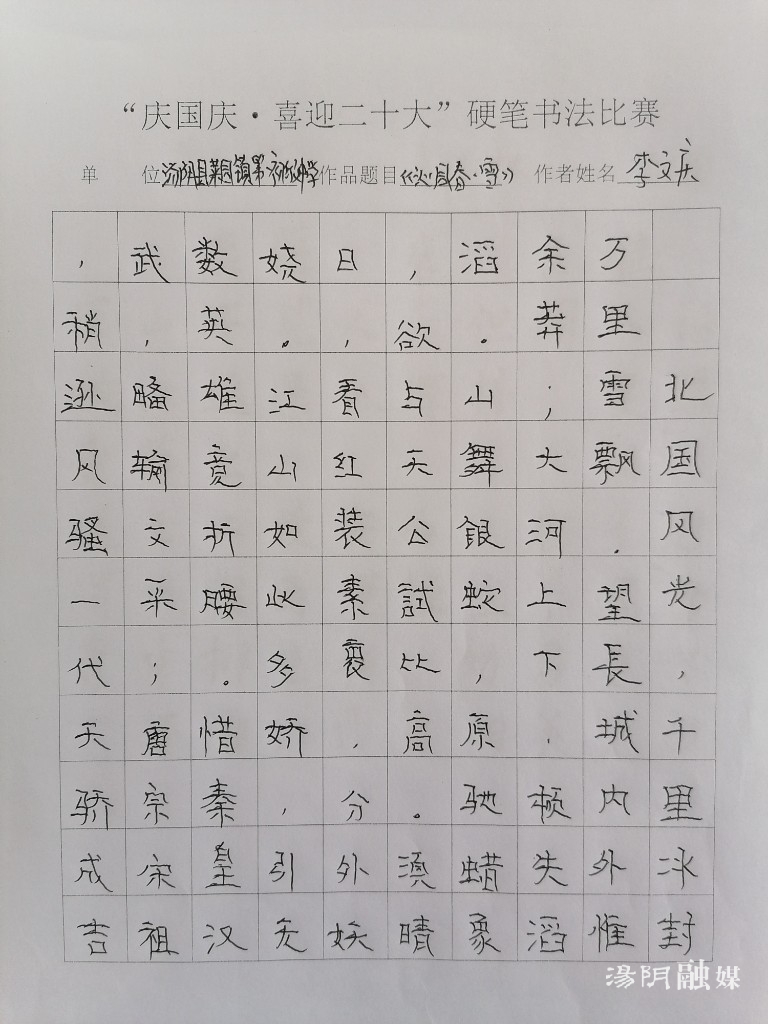 “庆国庆·喜迎二十大”硬笔书法比赛
单 位 汤阴县菜园镇第一初级中学 作品题目《沁园春·雪》 作者姓名 李文庆
北国风光，千里冰封
万里雪飘．望長城内外惟
余莽；大河上下，顿失滔
滔。山舞銀蛇，原驰蜡象
，欲与天公試比高。須晴
日，看红装素裹，分外妖
娆。江山如此多娇，引无
数英雄竞折腰。惜秦皇汉
武，略输文采；唐宗宋祖
，稍逊风骚一代天骄成吉
汤阴融媒